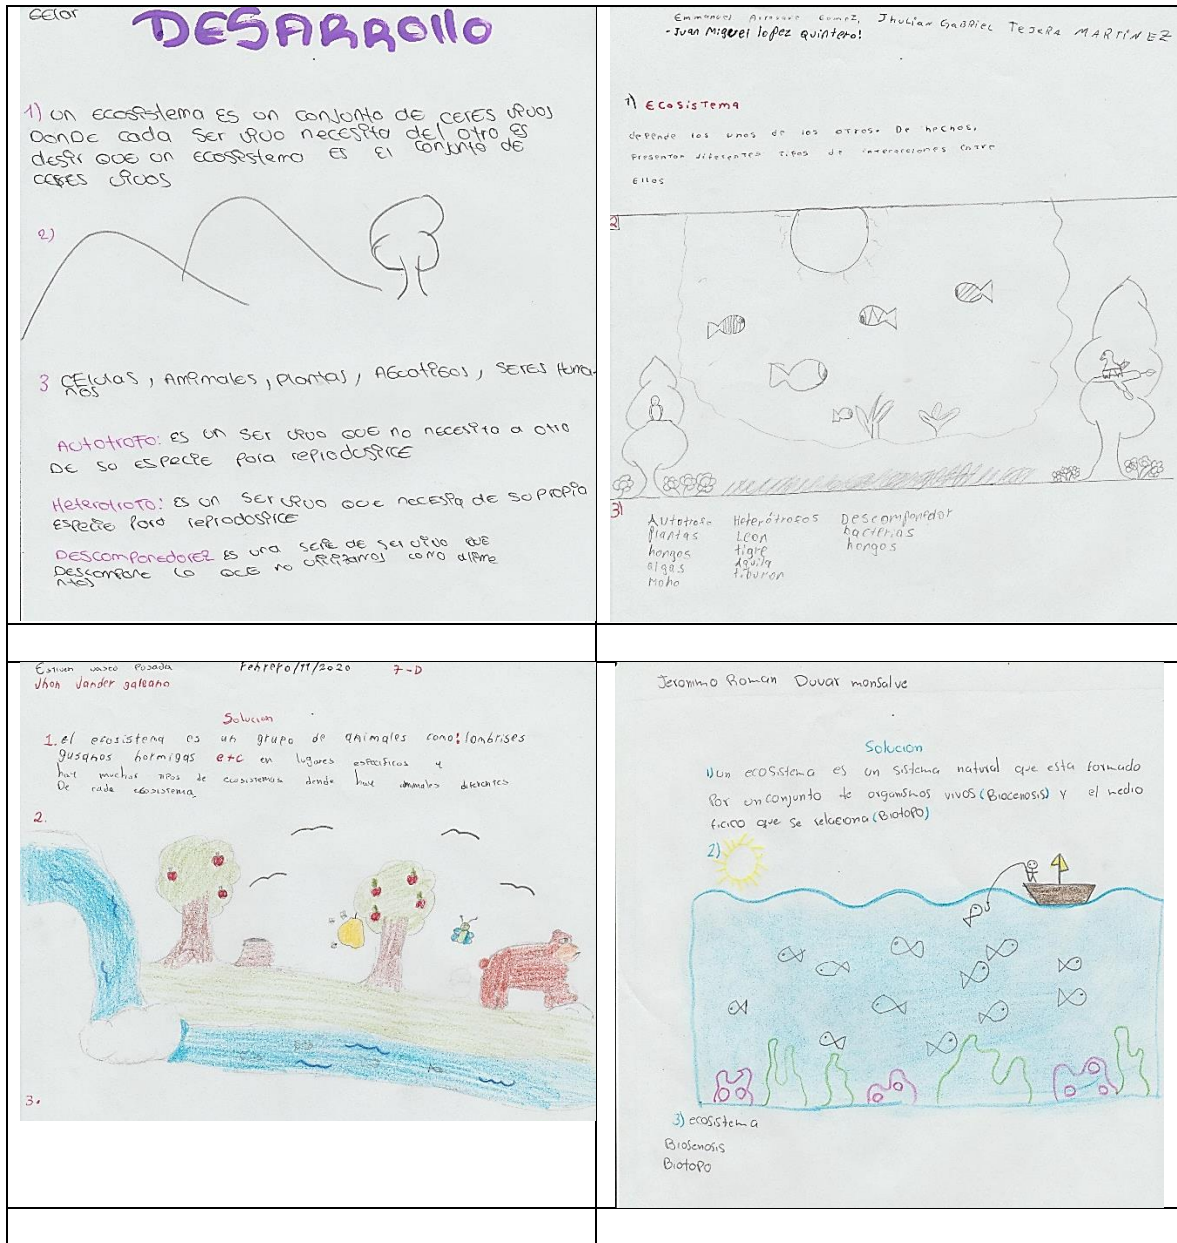 DESARROllo
1) un Ecosistema Es un conjunto de ceres vivos
Donde cada ser vivo necesita del otro es
desir que un Ecosistema Es El conjunto de
ceres vivos
2)
3 CElulas, Animales, plantas, AEcotiEos, SERES Huma-
nos
Autotrofo: Es un ser vivo que no necesita a otro
De su especie para reprodusirce
Heterotroto: Es un ser vivo que necesita de su propia
Especie para reprodusirce
DEscomponedorEz Es una serie de ser vivo que
DEscompone lo que no utilizamos como alime
ntos
Emmanuel Gomez, Jhulian Gabriel Tejera MARTÍNEZ
-Juan Miguel lopez Quintero!
1) Ecosistema
depende los unos de los otros. De hechos,
Presentan diferentes tipos de interacciones entre
Ellos
2
3)
Autotrofo Heterótrofos Descomponedor
Plantas Leon bacterias
hongos tigre hongos
algas Aguila
Moho tiburon
Estiven vasco Posada Febrero/11/2020 7-D
Jhon Jander galeano
Solucion
1. el ecosistema es un grupo de animales como: lombrises
gusanos hormigas etc en lugares especificos y
hay muchos tipos de ecosistemas donde hay animales diferentes
De cada ecosistema
2.
3.
Jeronimo Roman Duvar monsalve
Solucion
1) un ecosistema es un sistema natural que esta formado
Por un conjunto de organismos vivos (Biocenosis) y el medio
ficico que se relaciona (Biotopo)
2)
3) ecosistema
Biosenosis
Biotopo